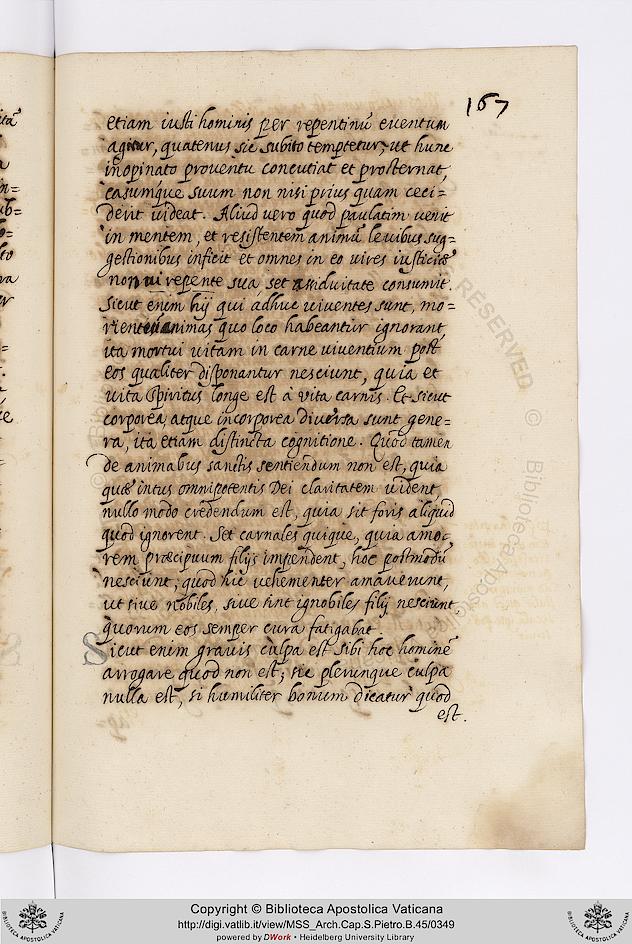 167
etiam iusti hominis per repentinũ euentum
agitur, quatenus sic subito temptetur, ut hunc
inopinato prouentu concutiat et prosternat,
casumque suum non nisi prius quam ceci=
derit uideat. Aliud vero quod paulatim uenit
in mentem, et resistentem animũ leuibus sug=
gestionibus inficit et omnes in eo uires iusticiæ
non ui repente sua, set assiduitate consumit.
Sicut enim hij qui adhuc uiuentes sunt, mo=
rientium animas quo loco habeantur ignorant,
ita mortui uitam in carne viuentium post
eos qualiter disponantur nesciunt, quia et
uita spiritus longe est à vita carnis. Et sicut
corporea, atque incorporea diuersa sunt gene=
ra, ita etiam distincta cognitione. Quod tamen
de animabus sanctis sentiendum non est, quia
quæ intus omnipotentis Dei claritatem uident,
nullo modo credendum est, quia sit foris aliquid
quod ignorent. Set carnales quique, quia amo-
rem præcipuum filijs impendent, hoc postmodũ
nesciunt, quod hic uehementer amauerunt,
ut siue nobiles, siue sint ignobiles filij nesciunt,
quorum eos semper cura fatigabat.
Sicut enim grauis culpa est sibi hoc hominẽ
arrogare quod non est; sic plerunque culpa
nulla est, si humiliter bonum dicatur quod
est.
© Biblioteca Apostolica
RESERVED
Copyright © Biblioteca Apostolica Vaticana
http://digi.vatlib.it/view/MSS_Arch.Cap.S.Pietro.B.45/0349
powered by DWork • Heidelberg University Library